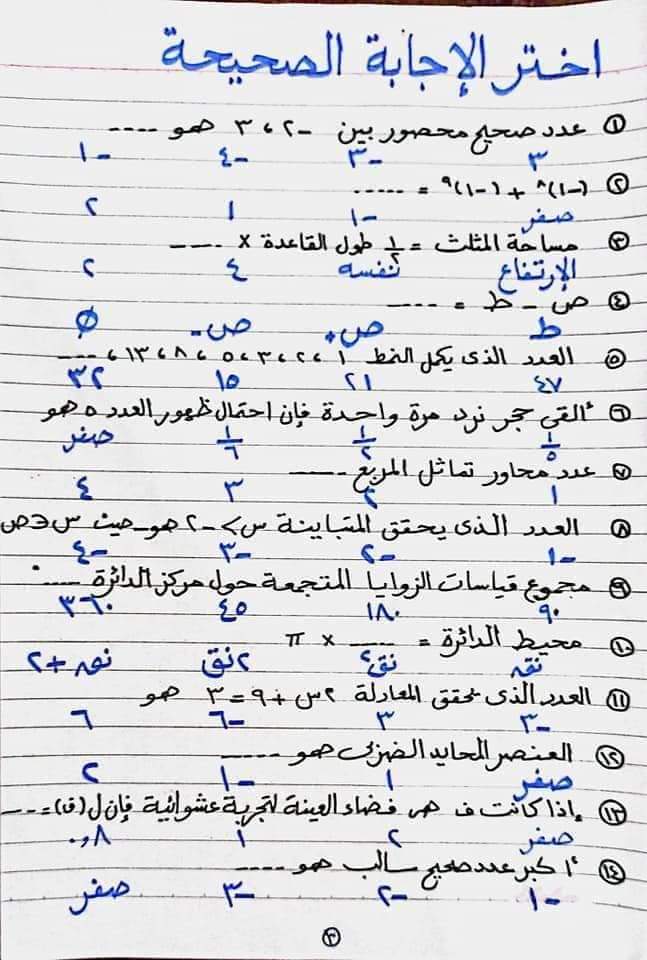 اختر الإجابة الصحيحة
① عدد صحيح محصور بين -٢ ، ٣ هو ----
٣ -٣ -٤ -١
② (-١)^٨ + (-١)^٩ = -----
صفر -١ ١ ٢
③ مساحة المثلث = ١/٢ طول القاعدة × ----
الإرتفاع نفسه ٤ ٢
④ ص - ط = ----
ط ص+ ص- Ø
⑤ العدد الذى يكمل النمط ١ ، ٢ ، ٣ ، ٥ ، ٨ ، ١٣ ، ----
٤٧ ٢١ ١٥ ٣٢
⑥ ألقي حجر نرد مرة واحدة فإن احتمال ظهور العدد ٥ هو
١/٥ ١/٢ ١/٦ صفر
⑦ عدد محاور تماثل المربع -----
١ ٢ ٣ ٤
⑧ العدد الذى يحقق المتباينة س > -٢ هو - حيث س ∈ ص
-١ -٢ -٣ -٤
⑨ مجموع قياسات الزوايا المتجمعة حول مركز الدائرة ----°
٩٠ ١٨٠ ٤٥ ٣٦٠
⑩ محيط الدائرة = ---- × π
نق نق٢ ٢نق نق+٢
⑪ العدد الذى يحقق المعادلة ٢س + ٩ = ٣ هو
-٣ ٣ -٦ ٦
⑫ العنصر المحايد الضربى هو -----
صفر ١ -١ ٢
⑬ إذا كانت ف هى فضاء العينة لتجربة عشوائية فإن ل(ف) = ----
صفر ٢ ١ ٠,٨
⑭ أكبر عدد صحيح سالب هو ----
-١ -٢ -٣ صفر
③